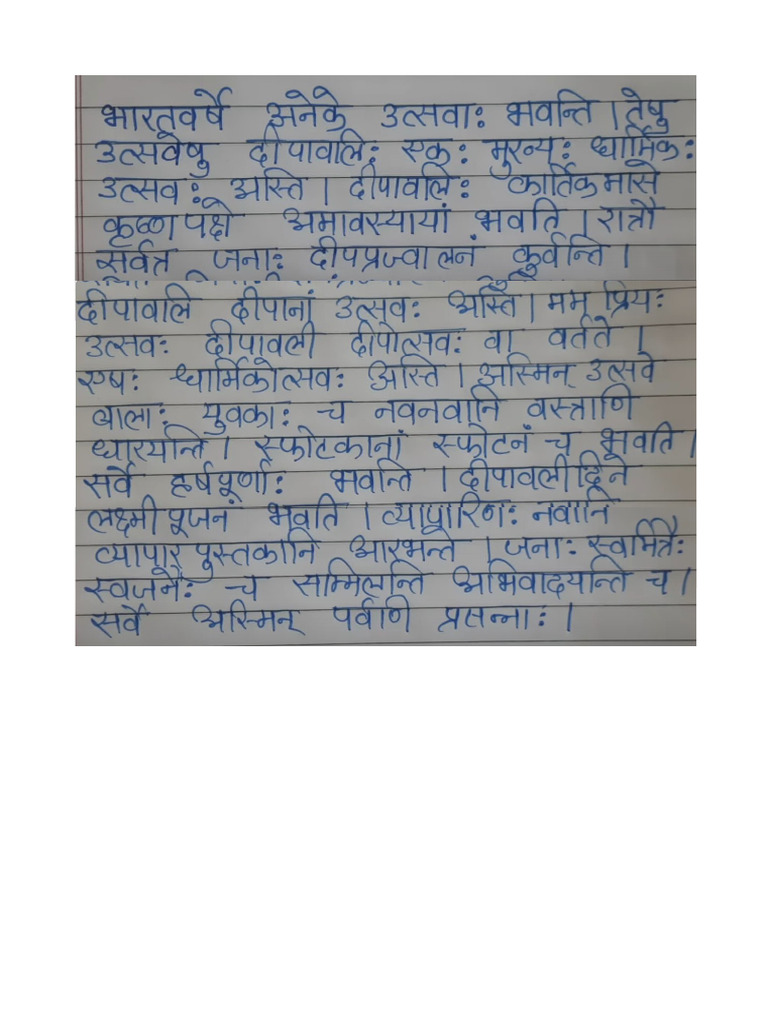 भारतवर्षे अनेके उत्सवाः भवन्ति । तेषु
उत्सवेषु दीपावलिः एकः मुख्यः धार्मिकः
उत्सवः अस्ति । दीपावलिः कार्तिकमासे
कृष्णपक्षे अमावस्यायां भवति । रात्रौ
सर्वत्र जनाः दीपप्रज्वालनं कुर्वन्ति ।
दीपावलि दीपानां उत्सवः अस्ति । मम प्रियः
उत्सवः दीपावली दीपोत्सवः वा वर्तते ।
एषः धार्मिकोत्सवः अस्ति । अस्मिन् उत्सवे
बालाः युवकाः च नवनवानि वस्त्राणि
धारयन्ति । स्फोटकानां स्फोटनं च भवति ।
सर्वे हर्षपूर्णाः भवन्ति । दीपावलीदिने
लक्ष्मीपूजनं भवति । व्यापारिणः नवानि
व्यापारपुस्तकानि आरभन्ते । जनाः स्वमित्रैः
स्वजनैः च सम्मिलन्ति अभिवादयन्ति च ।
सर्वे अस्मिन् पर्वणि प्रसन्नाः ।